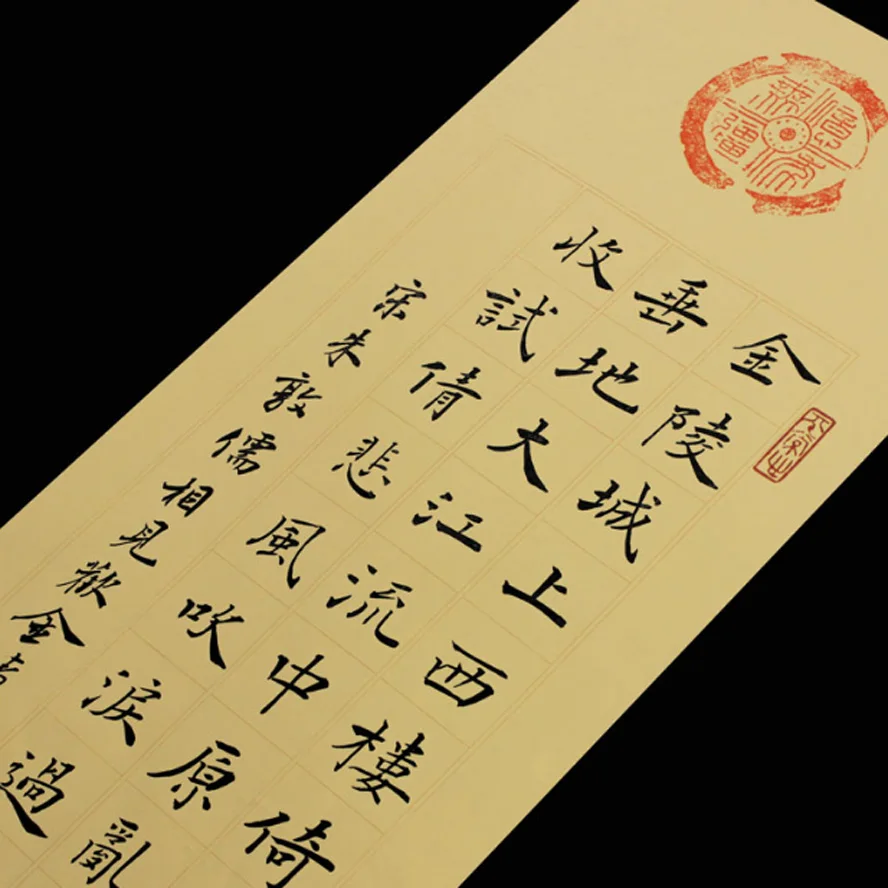 億年無疆
金陵城上西樓倚
垂地大江流中原亂
收試倩悲風吹淚過
宋朱敦儒相見歡金